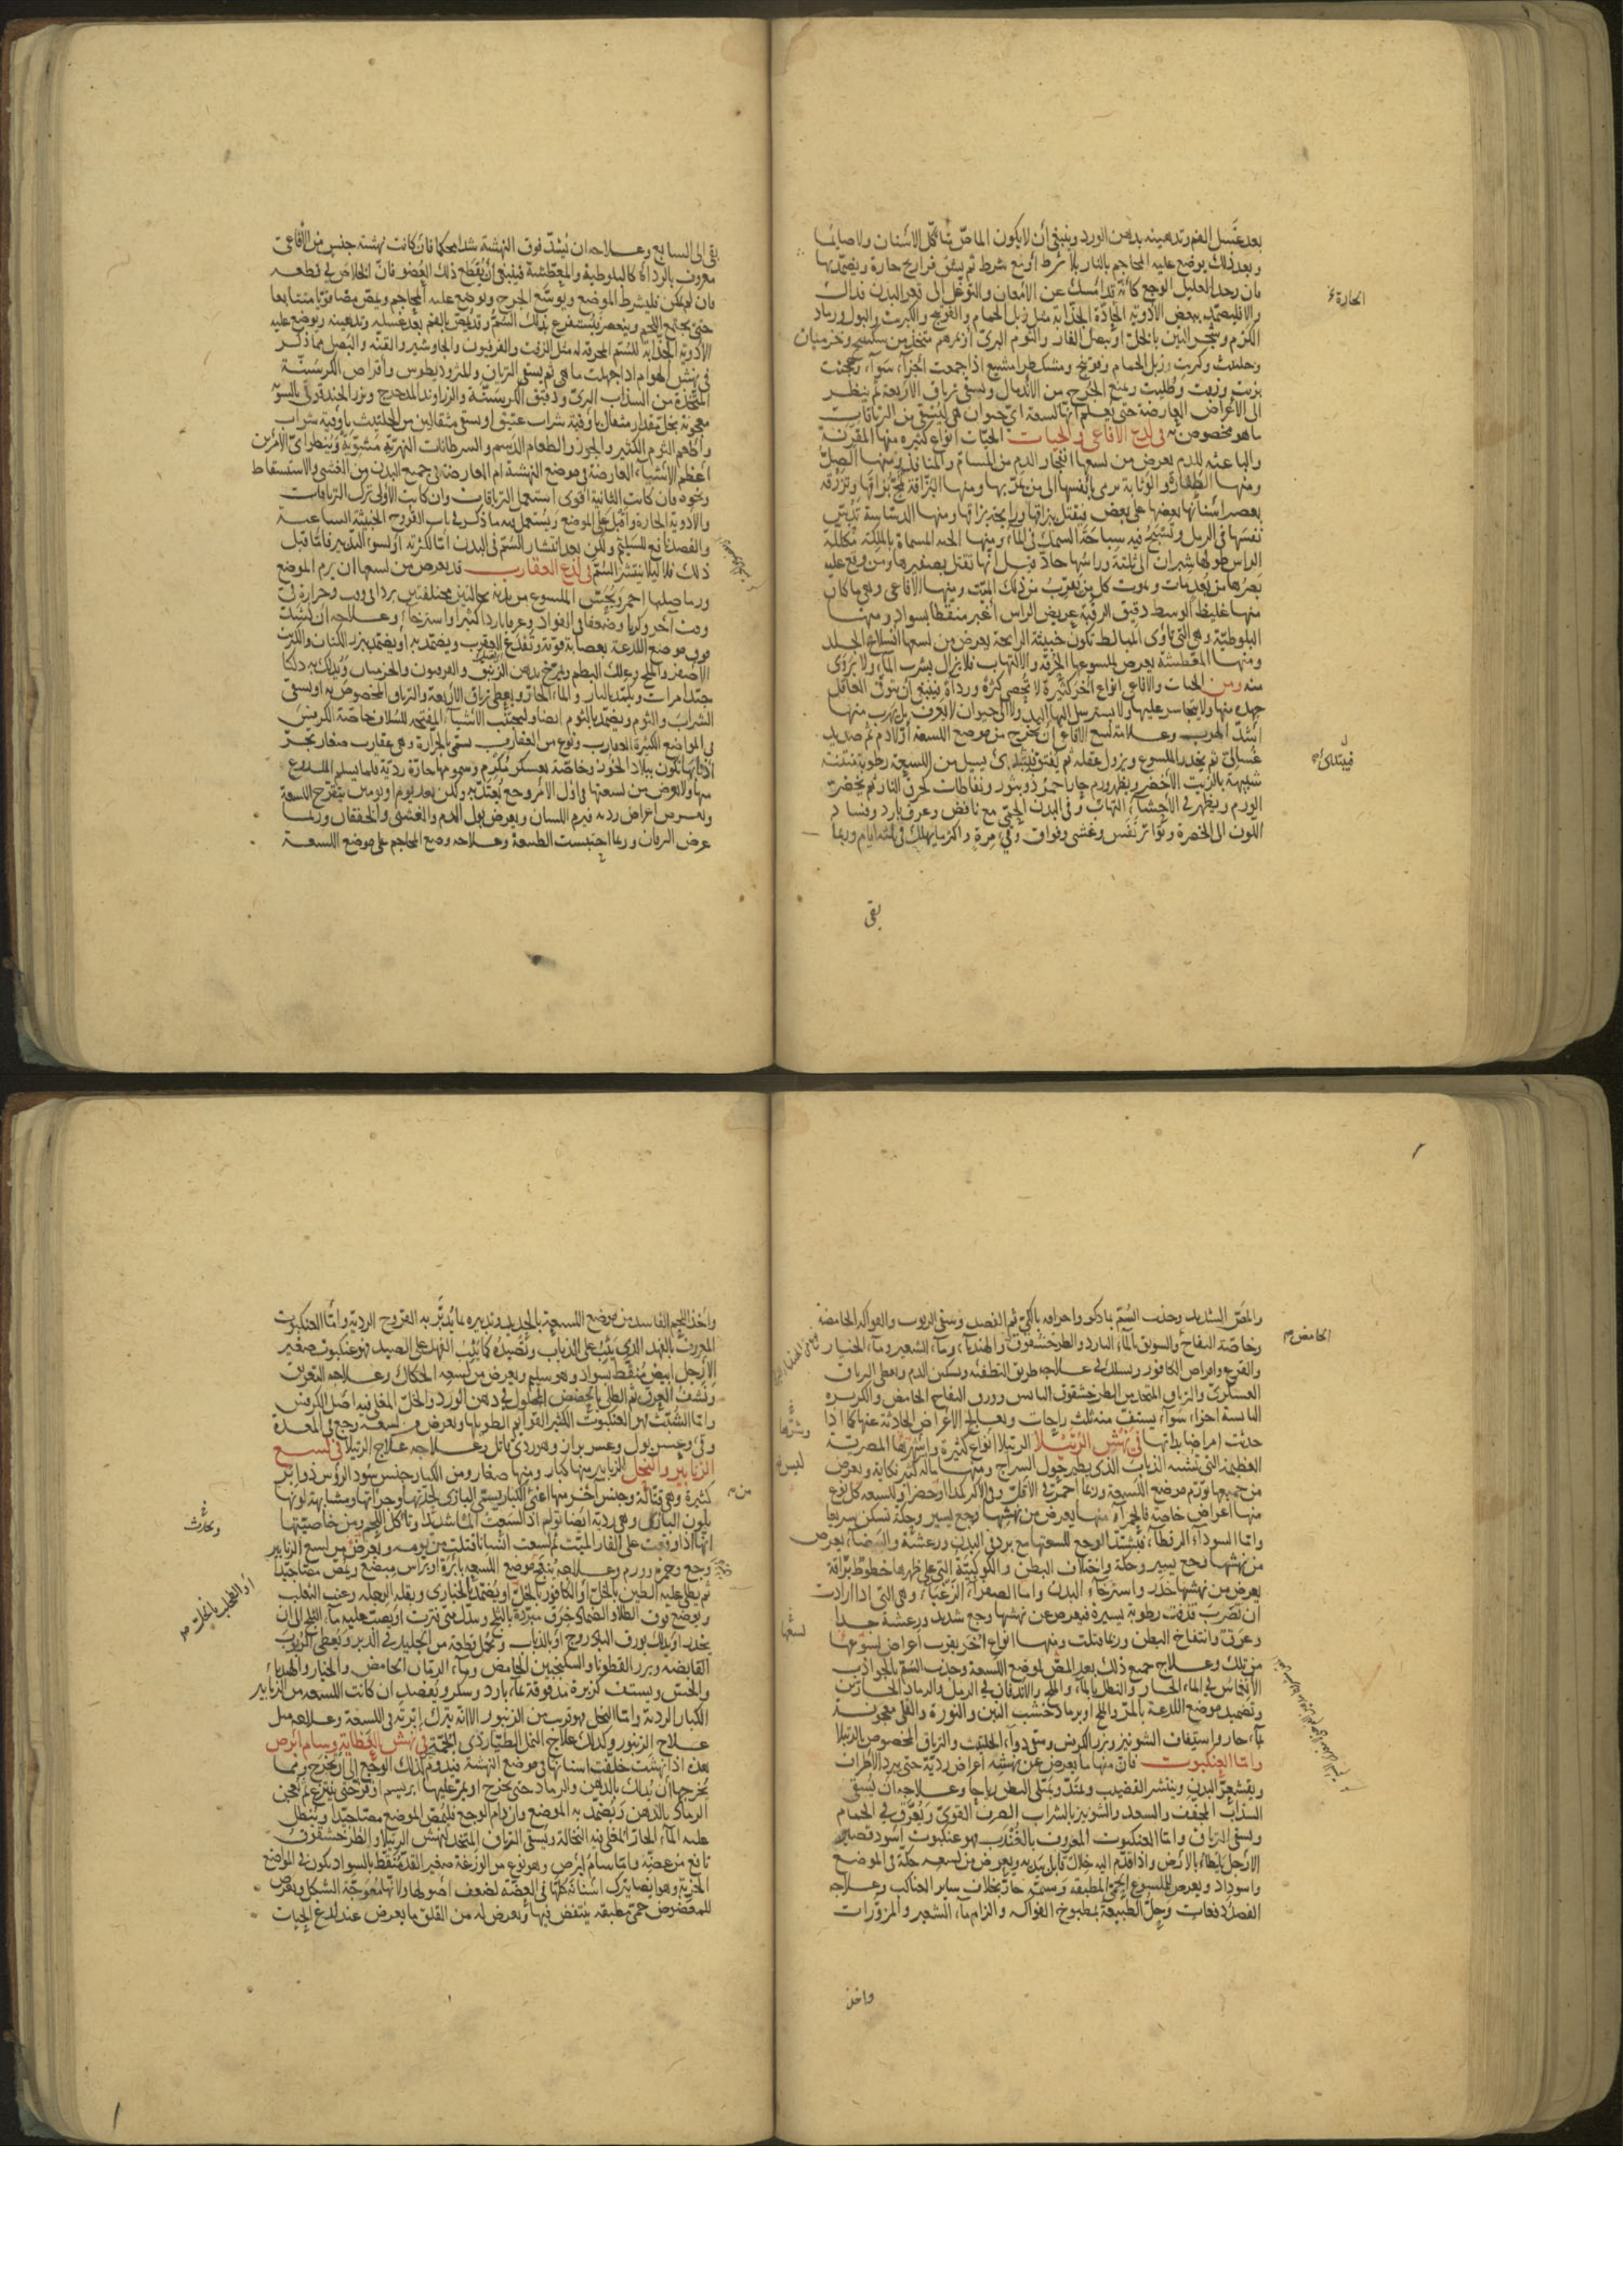 بعد غسل الفم وتدهينه بدهن الورد وينبغى أن لا يكون الماصّ متأكّل الاسنان ولا صايمًا
وبعد ذلك يوضع عليه المحاجم بالنار بلا شرط أو مع شرط ثم يشق فراريج حارة ويضمّد بها
فان وجد العليل الوجع كأنّه قد امسك عن الامعان والتوغّل الى قعر البدن فذاك
والا فليضمّد ببعض الأدوية الحادّة الجذّابة مثل زبل الحمام والفوتنج والكبريت والبول ورماد
الكرم وشجر التين بالخلّ او ببصل الفار والثوم البرىّ او مرهم متّخذ من سكبينج وخرميان
وحلتيت وكبريت وزبل الحمام وفوتنج ومشكطرامشيع اذا جمعت اجزاء سواء وعجنت
بزيت وزفت وطليت ويمنع الجرح من الاندمال ويسقى ترياق الاربعة ثم ينظر
الى الأعراض العارضة حتى يعلم انّها لسعة اىّ حيوان هى ليسقى من الترياقات
ما هو مخصوص به فى لدغ الافاعى والحيات الحيّات انواع كثيره منها المقرّنة
والباعثه للدم يعرض من لسعها انفجار الدم من المسامّ والمنافذ ومنها الصلّ
ومنها الطفّارة والوثّابة ترمى بانفسها الى من يمرّ بها ومنها البزّاقة تمجّ بزاقها وتزرقه
بعصر أسنانها بعضها على بعض فيقتل ببزاقها ورايحة بزاقها ومنها الدسّاسة تدسّ
نفسها فى الرمل وتسبح فيه سباحة السمك فى الماء ومنها الحيه المسماة بالملكة مكللة
الراس طولها شبران الى ثلثة وراسها حادّ قيل انّها تقتل بصفيرها ومن وقع عليه
بصرها من بُعد مات ويموت كل من يقرب من ذلك الميّت ومنها الافاعى وهى ما كان
منها غليظ الوسط دقيق الرقبة عريض الراس أغبر منقطا بسواد ومنها
البلوطيّة وهى التى تأوى المبالط تكون خبيثة الرايحة يعرض من لسعها انسلاخ الجلد
ومنها المعطّشة يعرض لملسوعها الحرقه والالتهاب فلا يزال يشرب الماء ولا يروى
منه ومن الحيات والافاعى انواع اخر كثيرة لا تحصى كثرة ورداة ينبغى أن يتوقّى العاقل
جهده منها ولا يتجاسر عليها ولا يسترسل اليها اليد ولا الى حيوان لا يعرف بل يهرب منها
اشدّ الهرب وعلامة لسع الافاعى ان يخرج من موضع اللسعة اولا دم ثم صديد
غسالىّ ثم يخدر الملسوع ويزول عقله ثم يفيق فيبتدئ يسيل من اللسعة رطوبة منتنة
شبيهة بالزيت الأخضر ويظهر ورم حارّ احمر ذو بثور ونفاطات كحرق النار ثم يخضرّ
الورم ويظهر فى الأحشاء التهاب وفى البدن الحمّى مع نافض وعرق بارد وفساد
اللون الى الخضرة وتواتر نفس وغشى وفواق وقىء مرة واكثر ما يهلك فى ثلثة ايام وربما
بقى
الحارة
فيبتدئ
بقى الى السابع وعلاجه ان يُشدّ فوق النهشة شدا محكما فان كانت نهشة جنس من الأفاعى
معروف بالرداة كالبلوطية والمعطّشة فينبغى أن يُقطع ذلك العضو فانّ الخلاص فى قطعه
فان لم يمكن فليشرط الموضع ويوسّع الجرح ويوضع عليه المحاجم ويمصّ مصّا قويّا متتابعا
حتى يجتمع اللحم وينعصر فيستفرغ بذلك السمّ وقد يمصّ بالفم بعد غسله وتدهينه ويوضع عليه
الادوية الجذّابة للسّم المحرقة له مثل الزفت والفرفيون والجاوشير والقنّه والبصل مما ذكر
فى نهش الهوام اذا جهلت ما هى ثم يسقى الترياق والمثروذيطوس واقراص الكرسنّة
المتّخذة من السذاب البرىّ ودقيق الكرسنّة والزراوند المدحرج وبزر الحندقوقى بالسويّة
معجونة بخل مقدار مثقال بأوقية شراب عتيق او يسقى مثقالين من الحلتيت باوقية شراب
واطعم الثوم الكثير والجوز والطعام الدسم والسرطانات النهريّة مشويّة وينظر اىّ الامرين
اعظم الأشياء العارضة فى موضع النهشة ام العارضة فى جميع البدن من الغشى والاستسقاط
ونحوه فان كانت الثانية اقوى استعمل الترياقات وان كانت الأولى ترك الترياقات
والادوية الحارة واقبل على الموضع ويستعمل فيه ما ذكر فى باب القروح الخبيثة الساعية
والفصد نافع للسليم ولكن بعد انتشار السّم فى البدن اما لكثرته او لسوء التدبير فامّا قبل
ذلك فلا ليلا ينتشر السمّ فى لدغ العقارب قد يعرض من لسعها ان يرم الموضع
ورما صلبا احمر ويحسّ الملسوع من بدنه بحالتين مختلفتين برد الى وقت وحرارة فى
وقت آخر وكربا وضعفا فى الفواد وعرقا باردا كثيرا واسترخاء وعلاجه ان يشدّ
فوق موضع اللدغة بعصابة قويّة وتفدغ العقرب ويضمّد به او يضمّد ببزر الكتان والكبريت
الاصفر والملح وعلك البطم ويمرّخ بدهن الزنبق والفربيون والخرميان ويدلك به دلكا
جيّدا مرات ويكمّد بالنار والماء الحارّ ويعطى ترياق الأربعة والترياق المخصوص به او يسقى
الشراب والثوم ويضمّد بالثوم ايضا وليجتنب الأشياء المفتحه للسُدد خاصّة الكرفس
فى المواضع الكثيرة العقارب ونوع من العقارب يسمّى بالجرّارة وهى عقارب صغار تجرّ
اذنابها تكون ببلاد الخوز وخاصّة بعسكر مكرم وسمومها حارّة رديّة قلما يسلم الملدوغ
منها ولا يعرض من لسعتها فى اوّل الأمر وجع يعتدّ به ولكن بعد يوم او يومين يتقرّح اللسعة
وتعرض اعراض رديه فيرم اللسان ويعرض بول الدم والغشى والخفقان وربما
عرض اليرقان وربما احتبست الطبيعة وعلاجه وضع المحاجم على موضع اللسعة
والمصّ الشديد وجذب السّم بما ذكر واحراقه بالكىّ ثم الفصد وسقى الربوب والفواكه الحامضة
وخاصّة التفاح والسويق بالماء البارد والطرخشقوق والهندباء وماء الشعير وماء الخيار
والقرع واقراص الكافور ويسلك فى علاجه طريق التطفئه وتسكين الدم ويعطى الترياق
العسكرىّ والترياق المتّخذ من الطرخشقوق اليابس وورق التفاح الحامض والكزبره
اليابسة اجزاء سواء يستفّ منه ثلث راحات ويعالج الأعراض الحادثة عنها كما اذا
حدثت امراضا بذاتها فى نهش الرتيلا الرتيلا انواع كثيرة واشرّها المصريّة
العظيمة التى تشبه الذباب الذى يطير حول السراج ومنها ما له كثير نكاية ويعرض
من جميعها تورّم موضع اللسعة وربما احمرّ فى الاقلّ وفى الاكثر كمدا وخضرا وللسعه كلّ نوع
منها اعراض خاصّة فالحمراء منها يعرض من نهشها وجع يسير وحكّة تسكن سريعا
وامّا السوداء الرقطاء فيشتدّ الوجع للسعتها مع برد فى البدن ورعشة والبيضاء يعرض
من نهشها وجع يسير وحكة واختلاف البطن والكوكبيّة التى على ظهرها خطوط برّاقة
يعرض من نهشها خدر واسترخاء البدن وامّا الصفراء الزغباء وهى التى اذا ارادت
ان تضرب قذفت رطوبة يسيرة فيعرض عن نهشها وجع شديد ورعشة جدا
وعرق وانتفاخ البطن وربما قتلت ومنها انواع اخر يقرب أعراض لسوعها
من تلك وعلاج جميع ذلك بعد المصّ لموضع اللسعة وجذب السّم بالجواذب
الانغماس فى الماء الحار والنطل بالماء والملح والاندفان فى الرمل والرماد الحارّين
وتضميد موضع اللدغة بالمرّ والملح او برماد خشب التين والنورة والقلى معجونة
بماء حار واستفاف الشونيز وبزر الكرفس وسقى دواء الحلتيت والترياق المخصوص بالرتيلا
وامّا العنكبوت فانّ منها ما يعرض عن نهشه أعراض رديّة حتى يبرد الاطراف
ويقشعرّ البدن وينتشر القضيب ويمتدّ ويمتلى البطن رياحا وعلاجه ان يسقى
السذاب المجفّف والسعد والشونيز بالشراب الصرف القوىّ ويعرّق فى الحمام
ويسقى الترياق وامّا العنكبوت المعروف بالغُندب فهو عنكبوت أسود قصير
الارجل بالارض واذا قدّم اليه خلاك قابل بيديه ويعرض من لسعه حكّة فى الموضع
واسوداد ويعرض للملسوع الحمّى المطبقه وسمّه حارّ بخلاف ساير العناكب وعلاجه
الفصد دفعات وحلّ الطبيعة بمطبوخ الفواكه والزام ماء الشعير والمزوّرات
واخذ
الحامض
واخذ اللحم الفاسد من موضع اللسعة بالحديد وتدبيره بما يدبّر به القروح الرديّة وامّا العنكبوت
المعروف بالفهد الذى يثب على الذباب وتصيده كما يثب الفهد على الصيد فهو عنكبوت صغير
الارجل ابيض منقّط بسواد وهو سليم ويعرض من لسعه الحكاك وعلاجه التعريق
ونشف العرق ثم الطلى بالحضض المحلول فى دهن الورد والخلّ المغلى فيه اصل الكرفس
وامّا الشّبث فهو العنكبوت الكثير القوايم الطويلها ويعرض من لسعه وجع فى المعدة
وقىء وعسر بول وعسر براز وهو ردىّ قاتل وعلاجه علاج الرتيلا فى لسع
الزنابير والنحل الزنابير منها كبار ومنها صغار ومن الكبار جنس سُود الرؤس ذو ابر
كثيرة وهى قتّالة وجنس آخر منها اعنى الكبار يسمّى البازى لحدّتها وجرأتها ومشابهة لونها
بلون البازى وهى رديّة ايضا تولم اذا لسعت ألما شديدا وتأكل اللحم ومن خاصيّتها
انّها اذا وقعت على الفار الميّت ثم لسعت انسانا قتلت من يومه ويعرض من لسع الزنابير
وجع وحمرة وورم وعلاجه ينقّى موضع اللسعه بابرة او براس مبضع ويمصّ مصّا جيّدا
ثم يطلى عليه الطين بالخلّ او الكافور بالخلّ او يضمّد بالخبازى وبقله الرجله وعنب الثعلب
ويوضع فوق الطلا والضماد خرق مبرّدة بالثلج وتبدّل متى فترت او يصبّ عليه ماء الثلج الى ان
يخدر او يدلك بورق الباذروج او بالذباب ويحمل قطعة من الجليد فى الدبر ويعطى الربوب
القابضه وبزر القطونا والسكنجبين الحامض وماء الرمّان الحامض والخيار والهندباء
والخسّ ويستف كزبرة مدقوقة بماء بارد وسكر ويفصد ان كانت اللسعه من الزنابير
الكبار الرديّة وامّا النحل فهو قريب من الزنبور الا انّه يترك ابرته فى اللسعة وعلاجه مثل
علاج الزنبور وكذلك علاج النمل الطيّار ذى الحمّة فى نهش العظاية وسام ابرص
هذه اذا نهشت خلّفت اسنانها فى موضع النهشة فيدوم لذلك الوجع الى أن يُخرج وممّا
يخرجها أن يدلك بالدهن والرماد حتى يخرج او يمرّ عليها ابريسم او قزّ حتى ينتزع ثم يعجن
الرماد بالدهن ويضمّد به الموضع وان دام الوجع فليُمصّ الموضع مصّا جيّدا وينطل
عليه الماء الحارّ المغلى فيه النخالة ويسقى الترياق المتّخذ لنهش الرتيلا والطرخشقوق
نافع من عضّه وامّا سام ابرص وهو نوع من الوزغة صغير القدّ منقّط بالسواد يكون فى المواضع
الخربة وهو ايضا يترك أسنانه كلّها فى العضّة لضعف أصولها ولانّها معوجّة الشكل ويعرض
للمعضوض حمّى مطبقه ينتفض فيها ويعرض له من القلق ما يعرض عند لدغ الحيات